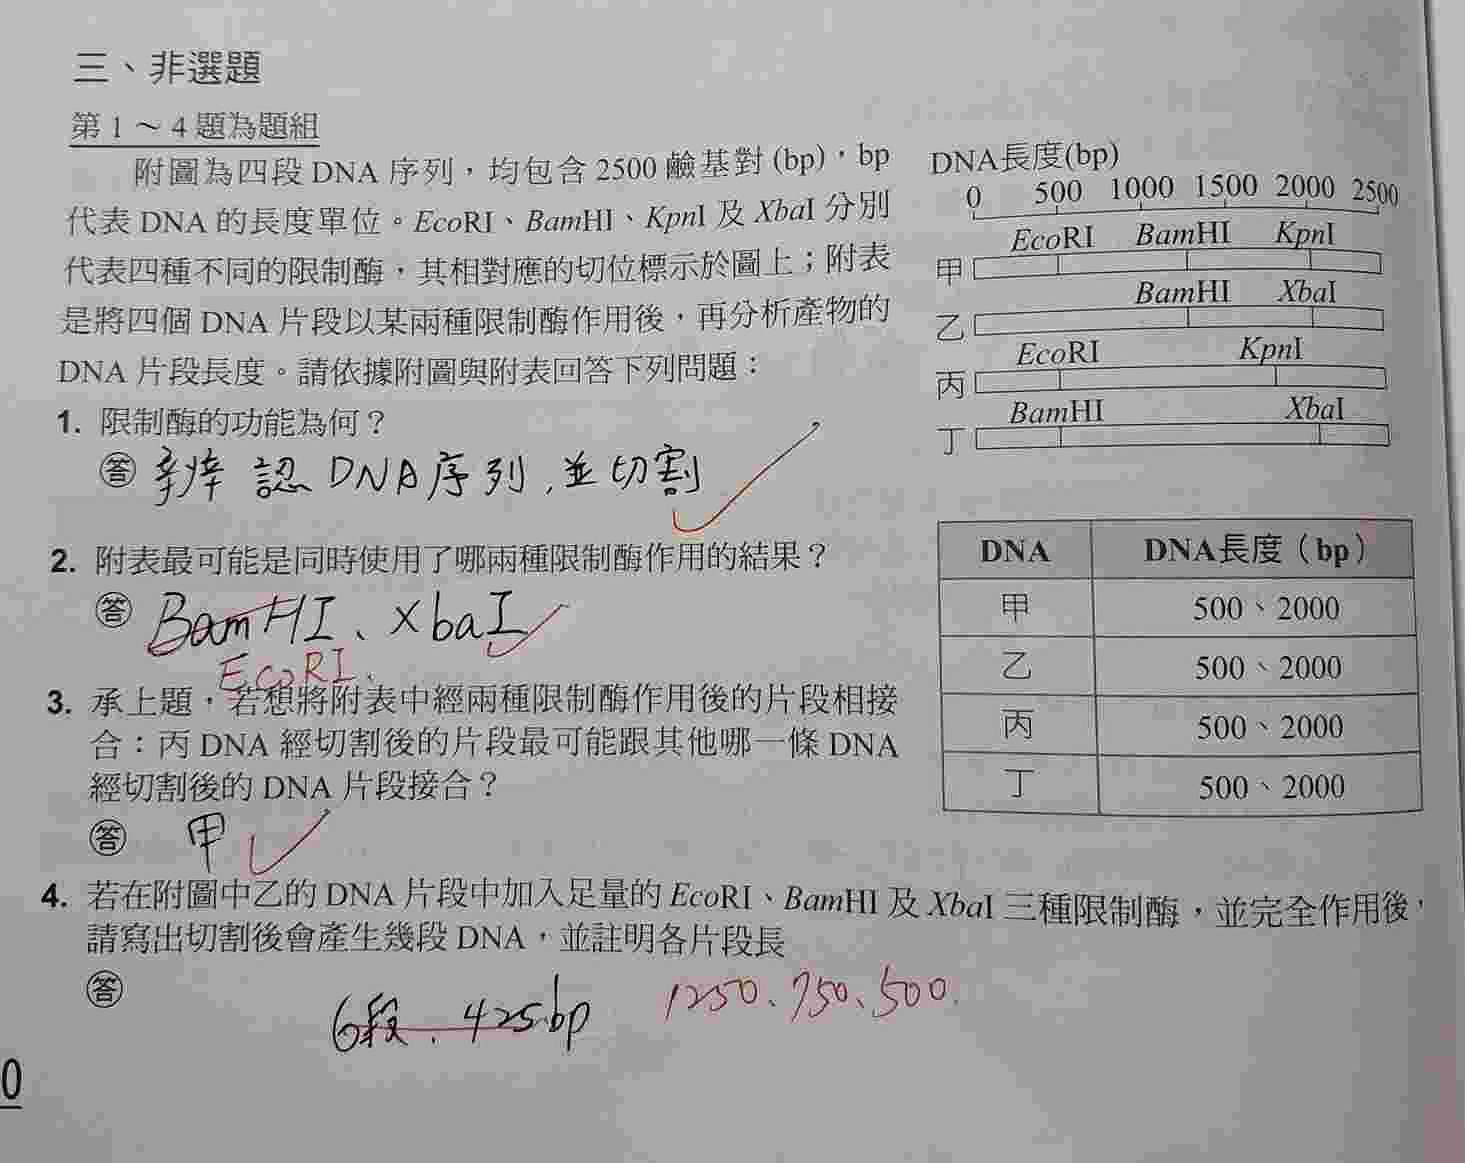 三、非選題
第 1 ~ 4 題為題組
附圖為四段 DNA 序列，均包含 2500 鹼基對 (bp)，bp
代表 DNA 的長度單位。EcoRI、BamHI、KpnI 及 XbaI 分別
代表四種不同的限制酶，其相對應的切位標示於圖上；附表
是將四個 DNA 片段以某兩種限制酶作用後，再分析產物的
DNA 片段長度。請依據附圖與附表回答下列問題：
DNA長度(bp)
0 500 1000 1500 2000 2500
EcoRI BamHI KpnI
甲
BamHI XbaI
乙
EcoRI KpnI
丙
BamHI XbaI
丁
1. 限制酶的功能為何？
答 辨認 DNA序列，並切割
2. 附表最可能是同時使用了哪兩種限制酶作用的結果？
答 BamHI、XbaI
EcoRI、
3. 承上題，若想將附表中經兩種限制酶作用後的片段相接
合：丙 DNA 經切割後的片段最可能跟其他哪一條 DNA
經切割後的 DNA 片段接合？
答 甲
DNA DNA長度（bp）
甲 500、2000
乙 500、2000
丙 500、2000
丁 500、2000
4. 若在附圖中乙的 DNA 片段中加入足量的 EcoRI、BamHI 及 XbaI 三種限制酶，並完全作用後，
請寫出切割後會產生幾段 DNA，並註明各片段長
答
6段、425bp 1250、750、500.
0